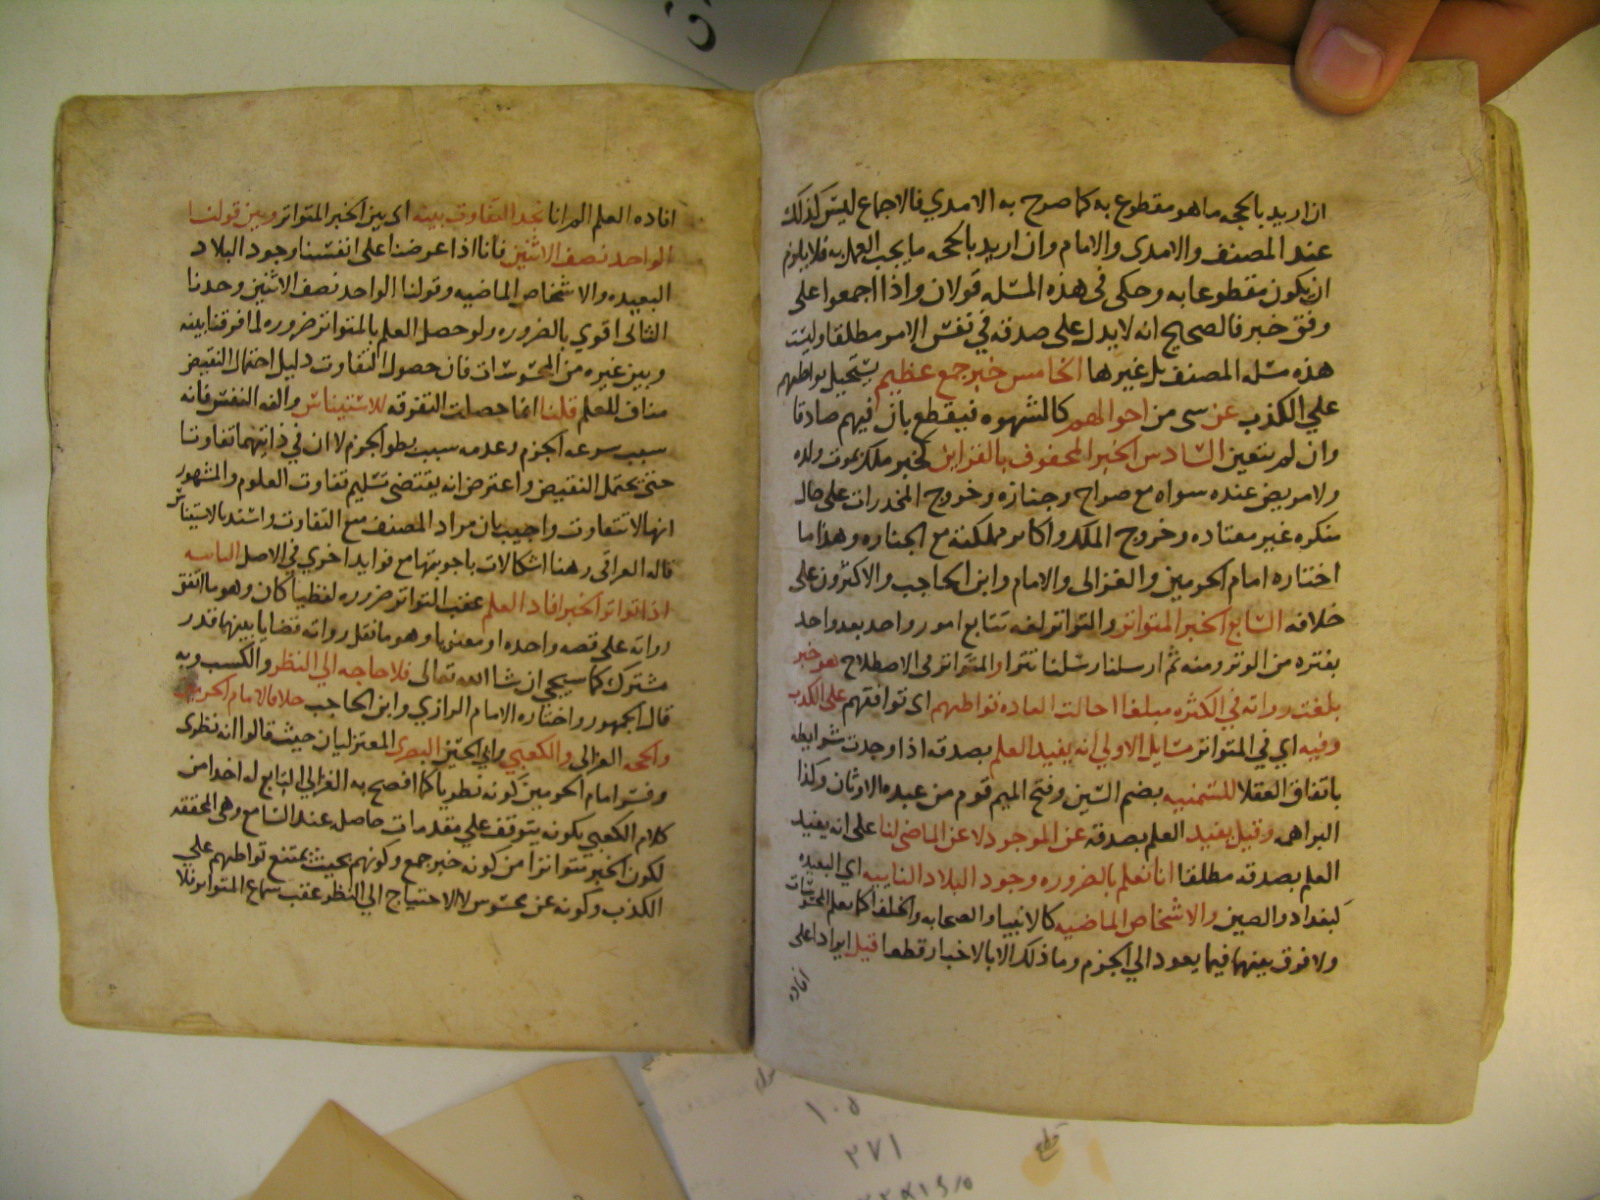 ان اريد بالحجه ما هو مقطوع به كما صرح به الامدي فالاجماع ليس كذلك
عند المصنف والامدى والامام وان اريد بالحجه ما يجب العمل به فلا يلزم
ان يكون مقطوعا به وحكى فى هذه المسله قولان واذا اجمعوا على
وفق خبر فالصحيح انه لا يدل على صدقه في نفس الامر مطلقا وليست
هذه مسله المصنف بل غيرها الخامس خبر جمع عظيم يستحيل تواطئهم
علي الكذب عن سى من احوالهم كالشهوه فيقطع بان فيهم صادقا
وان لم يتعين السادس الخبر المحفوف بالقراين كخبر ملك بموت ولده
ولا مريض عنده سواه مع صراخ وجنازه وخروج المخدرات على حال
منكره غير معتاده وخروج الملك واكابر مملكته مع الجنازه وهذا ما
اختاره امام الحرمين والغزالى والامام وابن الحاجب والاكثرون على
خلافه السابع الخبر المتواتر والتواتر لغه تتابع امور واحد بعد واحد
بفتره من الوتر ومنه ثم ارسلنا رسلنا تترا والمتواتر فى الاصطلاح هو خبر
بلغت رواته في الكثره مبلغا احالت العاده تواطيهم اى توافقهم على الكذب
وفيه اي في المتواتر مسايل الاولي انه يفيد العلم بصدقه اذا وجدت شرايطه
باتفاق العقلا للسمنيه بضم السين وفتح الميم قوم من عبده الاوثان وكذا
البراهمه وقيل يفيد العلم بصدقه عن الموجود لا عن الماضى لنا على انه يفيد
العلم بصدقه مطلقا انا نعلم بالضروره وجود البلاد النايىه اي البعيده
كبغداد والصين والاشخاص الماضيه كالانبيا والصحابه والخلفا كما نعلم المحسوسات
ولا فرق بينهما فيما يعود الي الجزم وما ذلك الا بالاخبار قطعا قيل ايرادا على
افاده
افاده العلم الضرانا نجد التفاوت بينه اى بين الخبر المتواتر وبين قولنا
الواحد نصف الاثنين فانا اذا عرضنا على انفسنا وجود البلاد
البعيده والاشخاص الماضيه وقولنا الواحد نصف الاثنين وجدنا
الثانى اقوي بالضروره ولو حصل العلم بالمتواتر ضروره لما فرقنا بينه
وبين غيره من المحسوسات فان حصول التفاوت دليل احتمال النقيض
مناف للعلم قلنا انما حصلت التفرقه للاستيناس والفه النفس فانه
سبب سرعه الجزم وعدمه سبب بطو الجزم لا ان في ذاتيهما تفاوتا
حتى يحتمل النقيض واعترض انه يقتضى تسليم تفاوت العلوم والمشهور
انها لا تتفاوت واجيب بان مراد المصنف منع التفاوت واسند بالاستيناس
قاله العراقى وهنا اشكالات باجوبتها مع فوايد اخري في الاصل الثانيه
اذا تواتر الخبر افاد العلم عقب التواتر ضروره لفظيا كان وهو ما اتفق
رواته على قصه واحده او معنويا وهو ما نقل رواته قضايا بينهما قدر
مشترك كما سيجى ان شا الله تعالى فلا حاجه الي النظر والكسب وبه
قال الجمهور واختاره الامام الرازي وابن الحاجب خلافا لامام الحرمين
والحجه الغزالى والكعبي وابي الحسين البصرى المعتزليان حيث قالوا انه نظرى
وفسر امام الحرمين كونه نظريا كما افصح به الغزالي التابع له اخدا من
كلام الكعبي بكونه يتوقف علي مقدمات حاصله عند السامع وهى المحققه
لكون الخبر متواترا من كونه خبر جمع وكونهم بحيث يمتنع تواطئهم علي
الكذب وكونه عن محسوس لا الاحتياج الي النظر عقب سماع المتواتر فلا
١٠٥
٢٧١